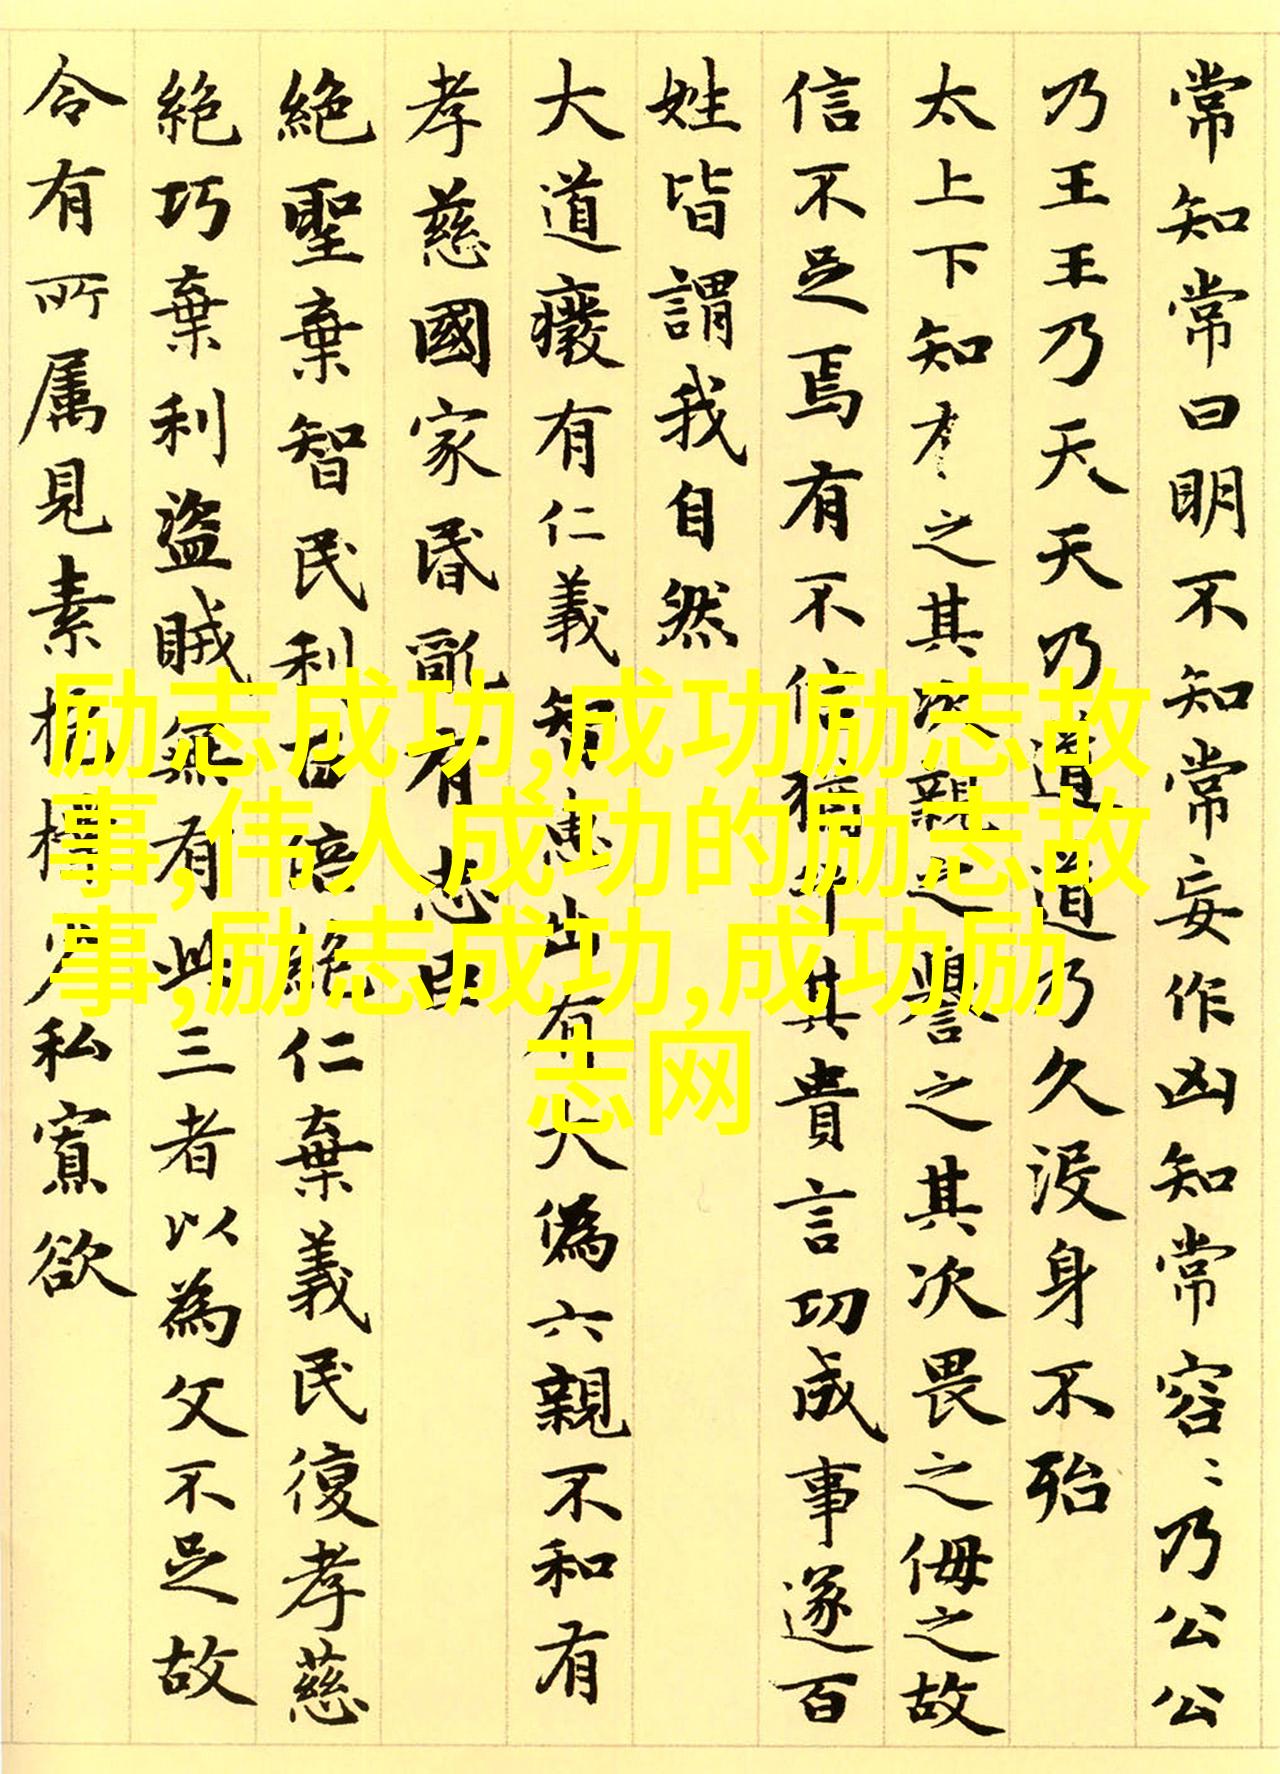 常知常曰明不知知常妄作凶知常容〻乃公公
乃王王乃天天乃道道乃久沒身不殆
太上下知有〻之其次親之譽之其次畏之侮之故
信不足焉有不信猶兮其貴言功成事遂百
姓皆謂我自然
大道癈有仁義智惠出有大偽六親不和有
孝慈國家昏亂有忠臣
絕聖棄智民利百倍絕仁棄義民復孝慈
絕巧棄利盜賊無有此三者以為文不足故
令有所属見素抱樸少私寡欲
励志成功,成功励志故
事,伟人成功的励志故
事,励志成功,成功励
志网